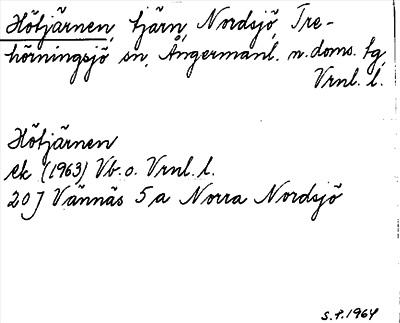 Hötjärnen, tjärn, Nordsjö, Tre-
hörningsjö sn, Ångermanl. n. doms. tg,
Vrnl. l.
Hötjärnen
ek (1963) Vb. o. Vrnl. l.
20J Vännäs 5a Norra Nordsjö
S.F. 1964